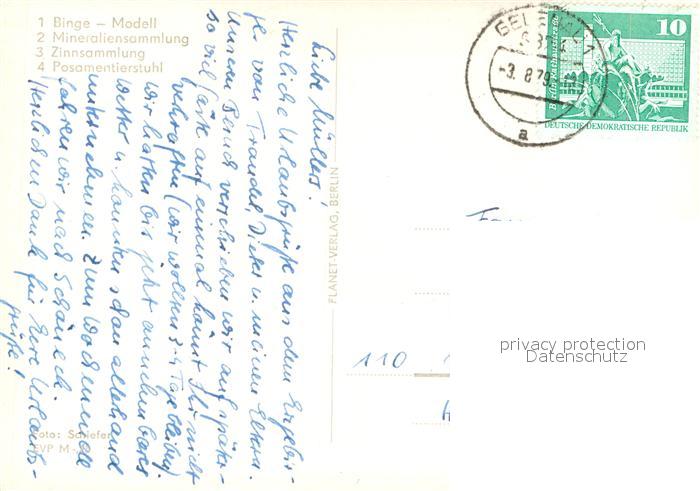 1 Binge – Modell
2 Mineraliensammlung
3 Zinnsammlung
4 Posamentierstuhl
Liebe Müllers!
Herzliche Urlaubsgrüße aus dem Erzgebir-
ge von Traudel, Dieter u. meinen Eltern.
Unseren Besuch verschieben wir auf später –
so viel Gäste auf einmal könnt Ihr nicht
verkraften (wir wollten 3-4 Tage bleiben)
Wir hatten bis jetzt annehmbares
Wetter u. konnten schon allerhand
unternehmen. Zum Wochenende
fahren wir nach Schöneck.
Herzlichen Dank für Eure Urlaubs-
grüße!
Foto: Schiefer
PLANET-VERLAG, BERLIN
GELENAU 1
-3. 8. 79
a
10
Berlin, Rathausstraße
DEUTSCHE DEMOKRATISCHE REPUBLIK
110
privacy protection
Datenschutz